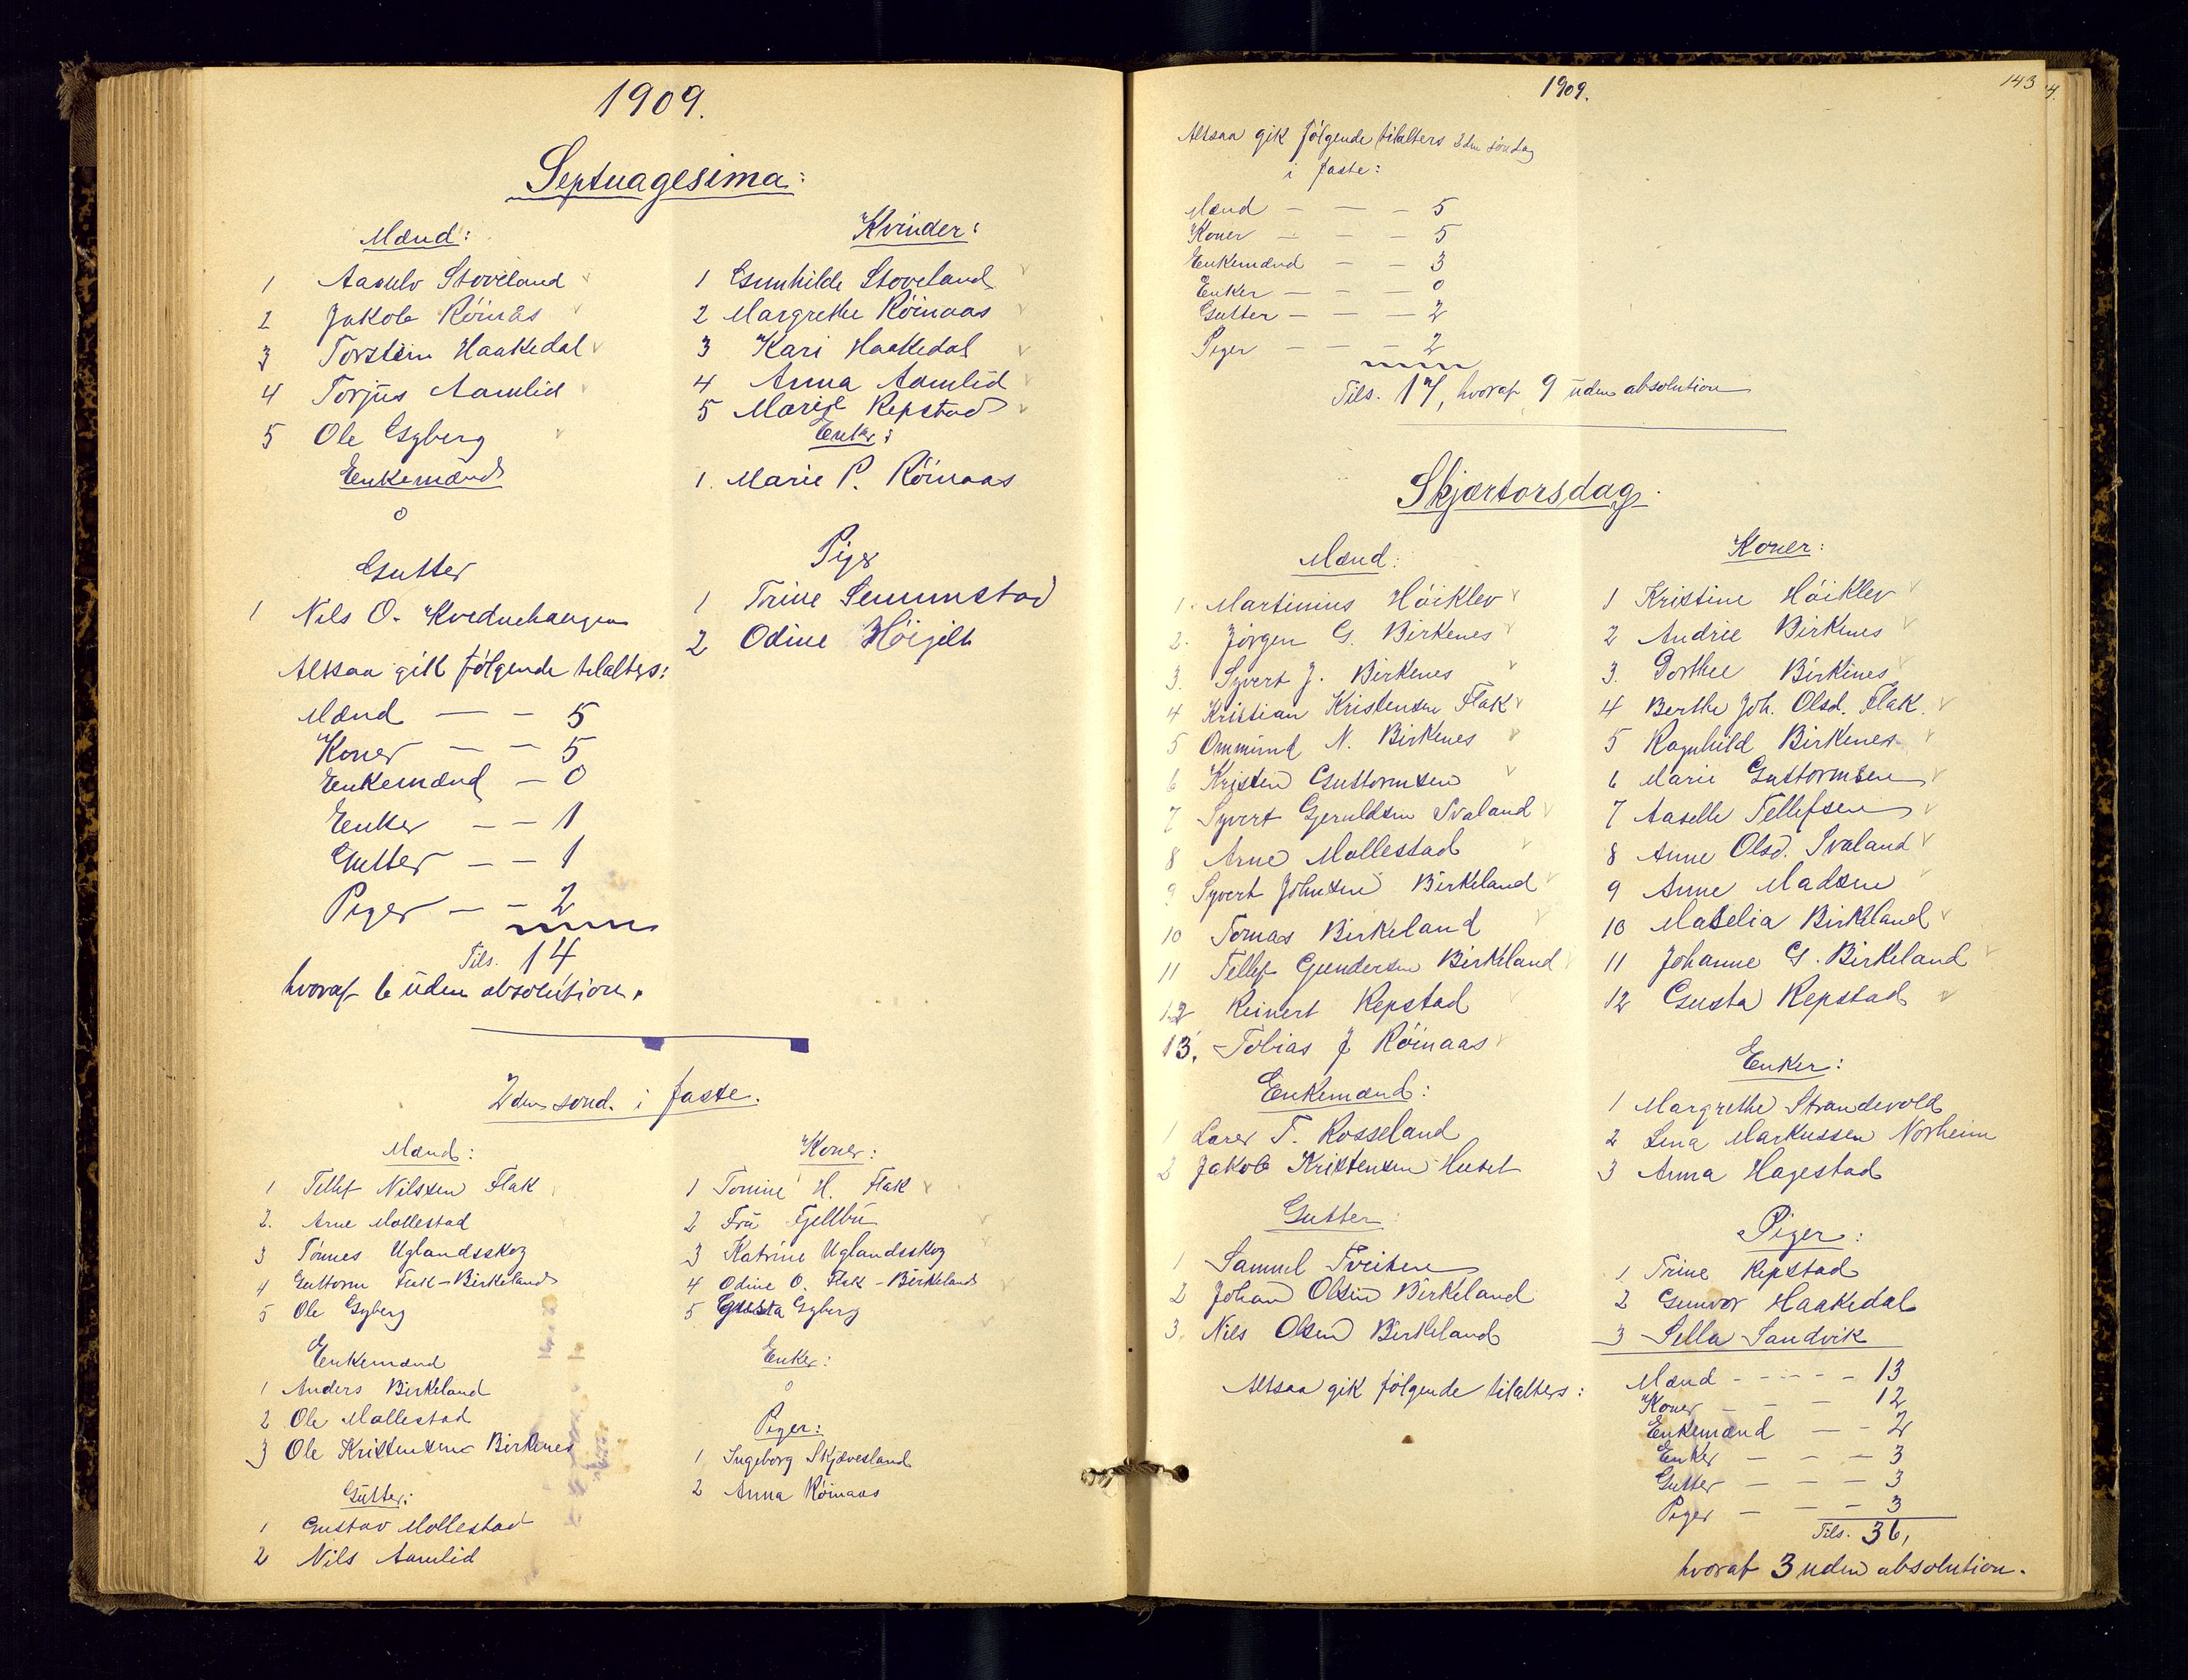 1909.
Septuagesima:
Mænd:
1 Aasulv Stoveland
2 Jakob Röinås
3 Torstein Haakedal
4 Torjus Aamlid
5 Ole Gyberg
Enkemænd
0
Gutter
1 Nils O. Kvednehaugen
Altsaa gik følgende tilalters:
Mænd — — 5
Koner — — 5
Enkemænd — 0
Enker — — 1
Gutter — — 1
Piger — — 2
Tils. 14
hvoraf 6 uden absolution.
Kvinder:
1 Gunhilde Stoveland
2 Margrethe Röinaas
3 Kari Haakedal
4 Anna Aamlid
5 Marie Repstad
Enker:
1. Marie P. Röinaas
Piger
1 Trine Senumstad
2 Odine Höigilt
2den sönd. i faste.
Mænd:
1 Tellef Nilssen Flak
2. Arne Mollestad
3 Tönnes Uglandsskog
4 Guttorm Flak-Birkeland
5 Ole Gyberg
Enkemænd
1 Anders Birkeland
2 Ole Mollestad
3 Ole Kristensen Birkenes
Gutter:
1 Gustav Mollestad
2 Nils Aamlid
Koner:
1 Tomine H. Flak
2 Fru Fjellbu
3 Katrine Uglandsskog
4 Odine O. Flak-Birkeland
5 Gusta Gyberg
Enker:
0
Piger:
1 Ingeborg Skjævesland
2 Anna Röinaas
143
4.
1909.
Altsaa gik følgende tilalters 2den söndag
i faste:
Mænd — — — 5
Koner — — — 5
Enkemænd — — 3
Enker — — — 0
Gutter — — — 2
Piger — — — 2
Tils. 17, hvoraf 9 uden absolution
Skjærtorsdag.
Mænd:
1. Martinius Höiklev
2. Jörgen G. Birkenes
3. Syvert J. Birkenes
4 Kristian Kristensen Flak
5 Ommund N. Birkenes
6 Kristen Guttormsen
7 Syvert Gjeruldsen Svaland
8 Arne Mollestad
9 Syvert Johnsen Birkeland
10 Tomas Birkeland
11 Tellef Gundersen Birkeland
12 Reinert Repstad
13. Tobias J Röinaas
Enkemænd:
1 Lars T. Rosseland
2 Jakob Kristensen Huset
Gutter:
1 Samuel Tveiten
2 Johan Olsen Birkeland
3. Nils Olsen Birkeland
Altsaa gik følgende tilalters:
Koner:
1 Kristine Höiklev
2 Andrie Birkenes
3. Dorthee Birkenes
4 Berthe Joh. Olsd. Flak.
5 Ragnhild Birkenes
6 Marie Guttormsen
7 Aaselle Tellefsen
8 Anne Olsd. Svaland
9 Anne Madsen
10 Matelia Birkeland
11 Johanne G. Birkeland
12 Gusta Repstad
Enker:
1 Margrethe Strandevold
2 Lina Markussen Norheim
3 Anna Hagestad
Piger:
1. Trine Repstad
2 Gunvor Haakedal
3 Sella Sandvik
Mænd - - - - - 13
Koner — — — 12
Enkemænd — — 2
Enker — — — 3
Gutter — — — 3
Piger — — — 3
Tils. 36,
hvoraf 3 uden absolution.